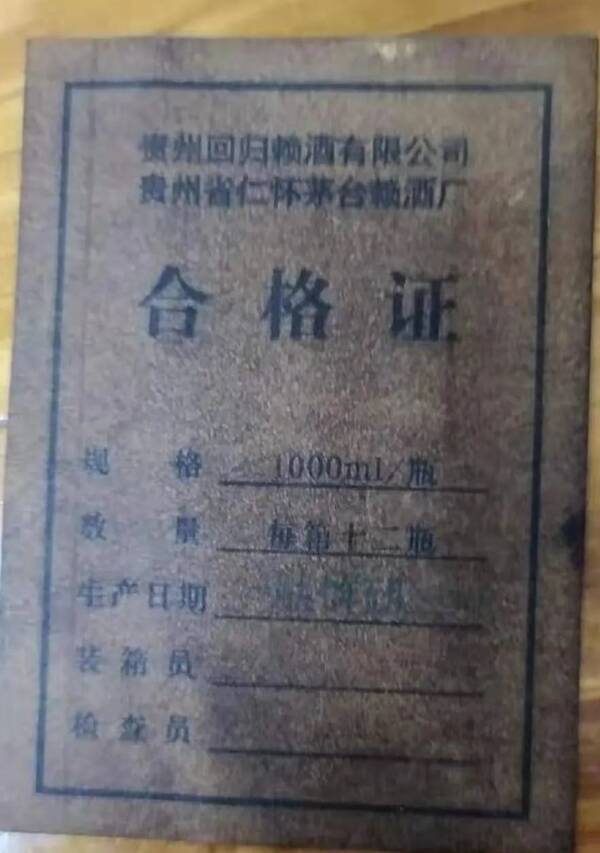 贵州回归赖酒有限公司
贵州省仁怀茅台赖酒厂
合格证
规格 1000ml/瓶
数量 每箱十二瓶
生产日期
装箱员
检查员